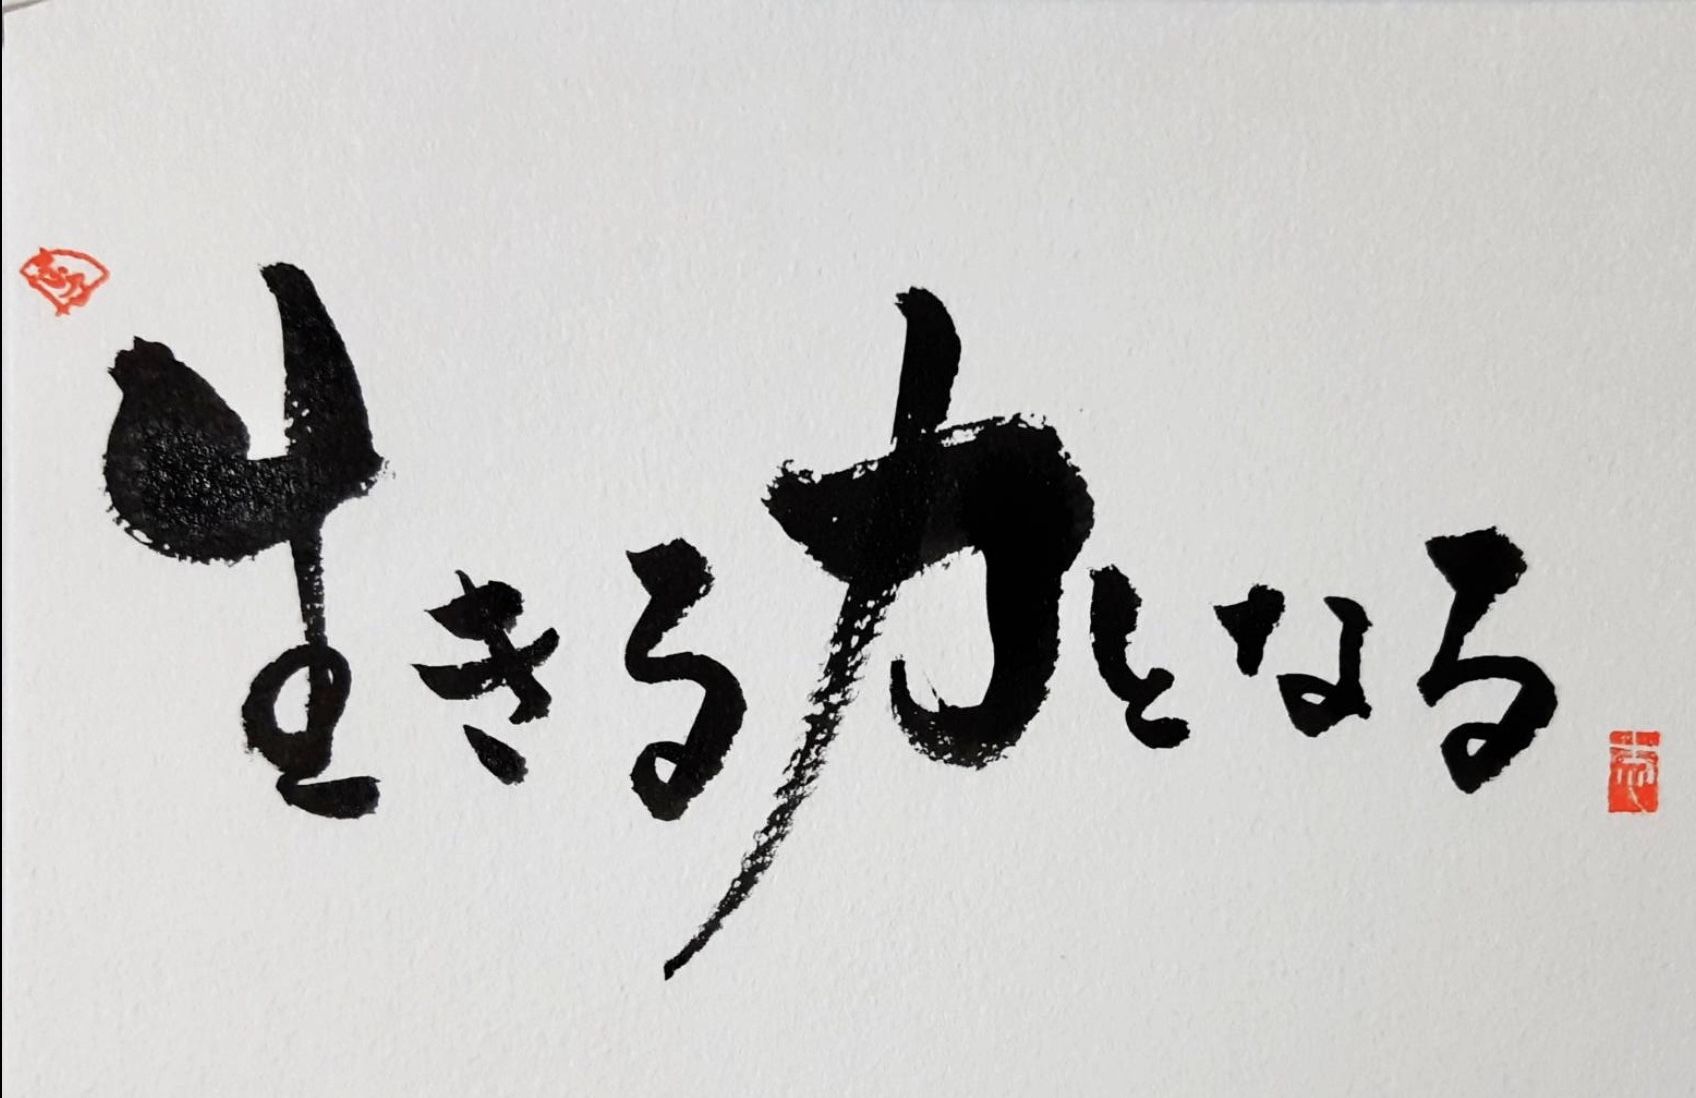 生きる力となる